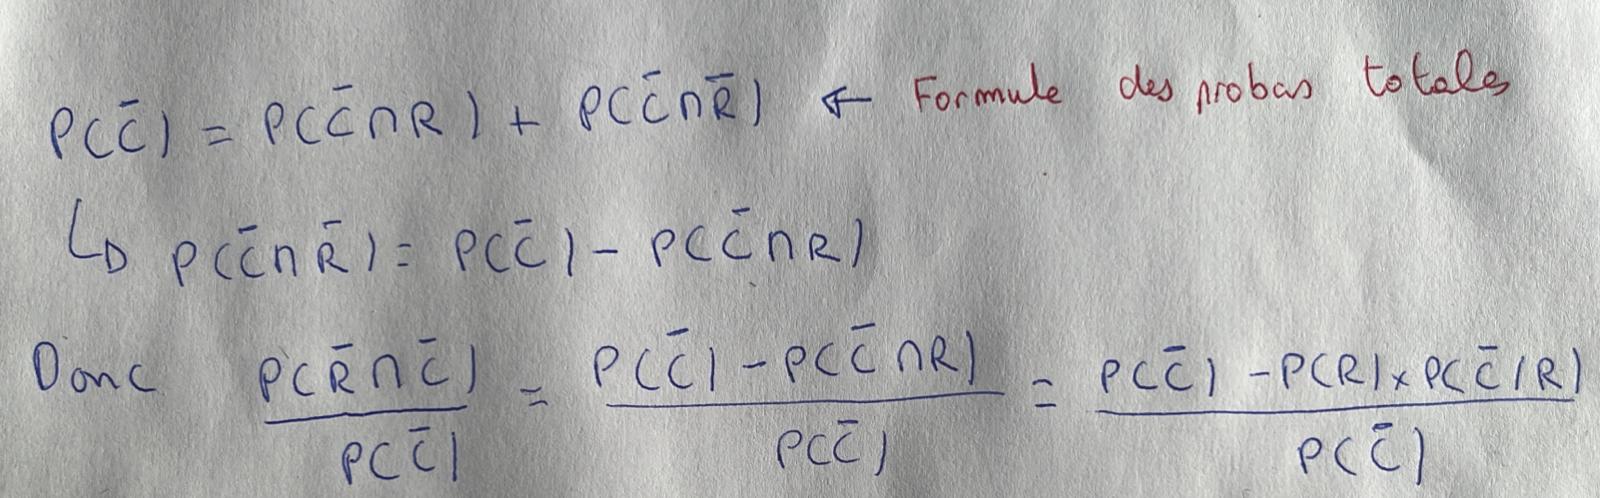 P(C̄) = P(C̄∩R) + P(C̄∩R̄) ← Formule des probas totales
↳ P(C̄∩R̄) = P(C̄) - P(C̄∩R)
Donc P(R̄∩C̄)/P(C̄) = (P(C̄) - P(C̄∩R))/P(C̄) = (P(C̄) - P(R)×P(C̄/R))/P(C̄)